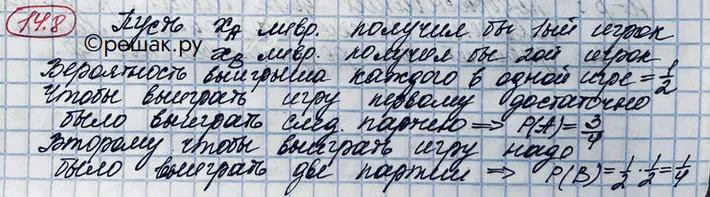 14.8 Пусть x_A ливр. получил бы 1ый игрок
©решак.ру x_B ливр. получил бы 2ой игрок
Вероятность выигрыша каждого в одной игре = 1/2
Чтобы выиграть игру первому достаточно
было выиграть след. партею ⇒ P(A) = 3/4
Второму чтобы выиграть игру надо
было выиграть две партии ⇒ P(B) = 1/2 · 1/2 = 1/4